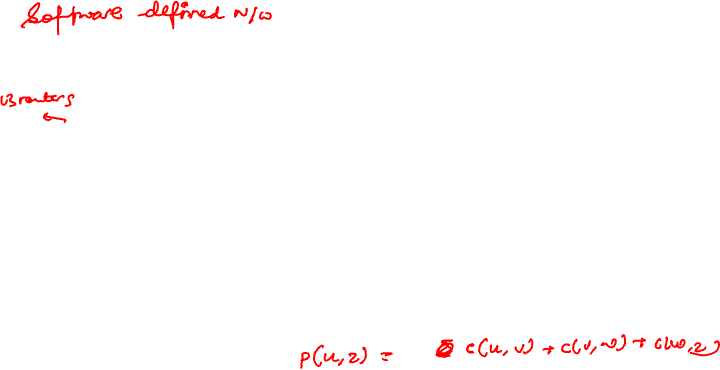 Software defined N/W
Brouters
P(u,z) = c(u,v) + c(v,w) + c(w,z)